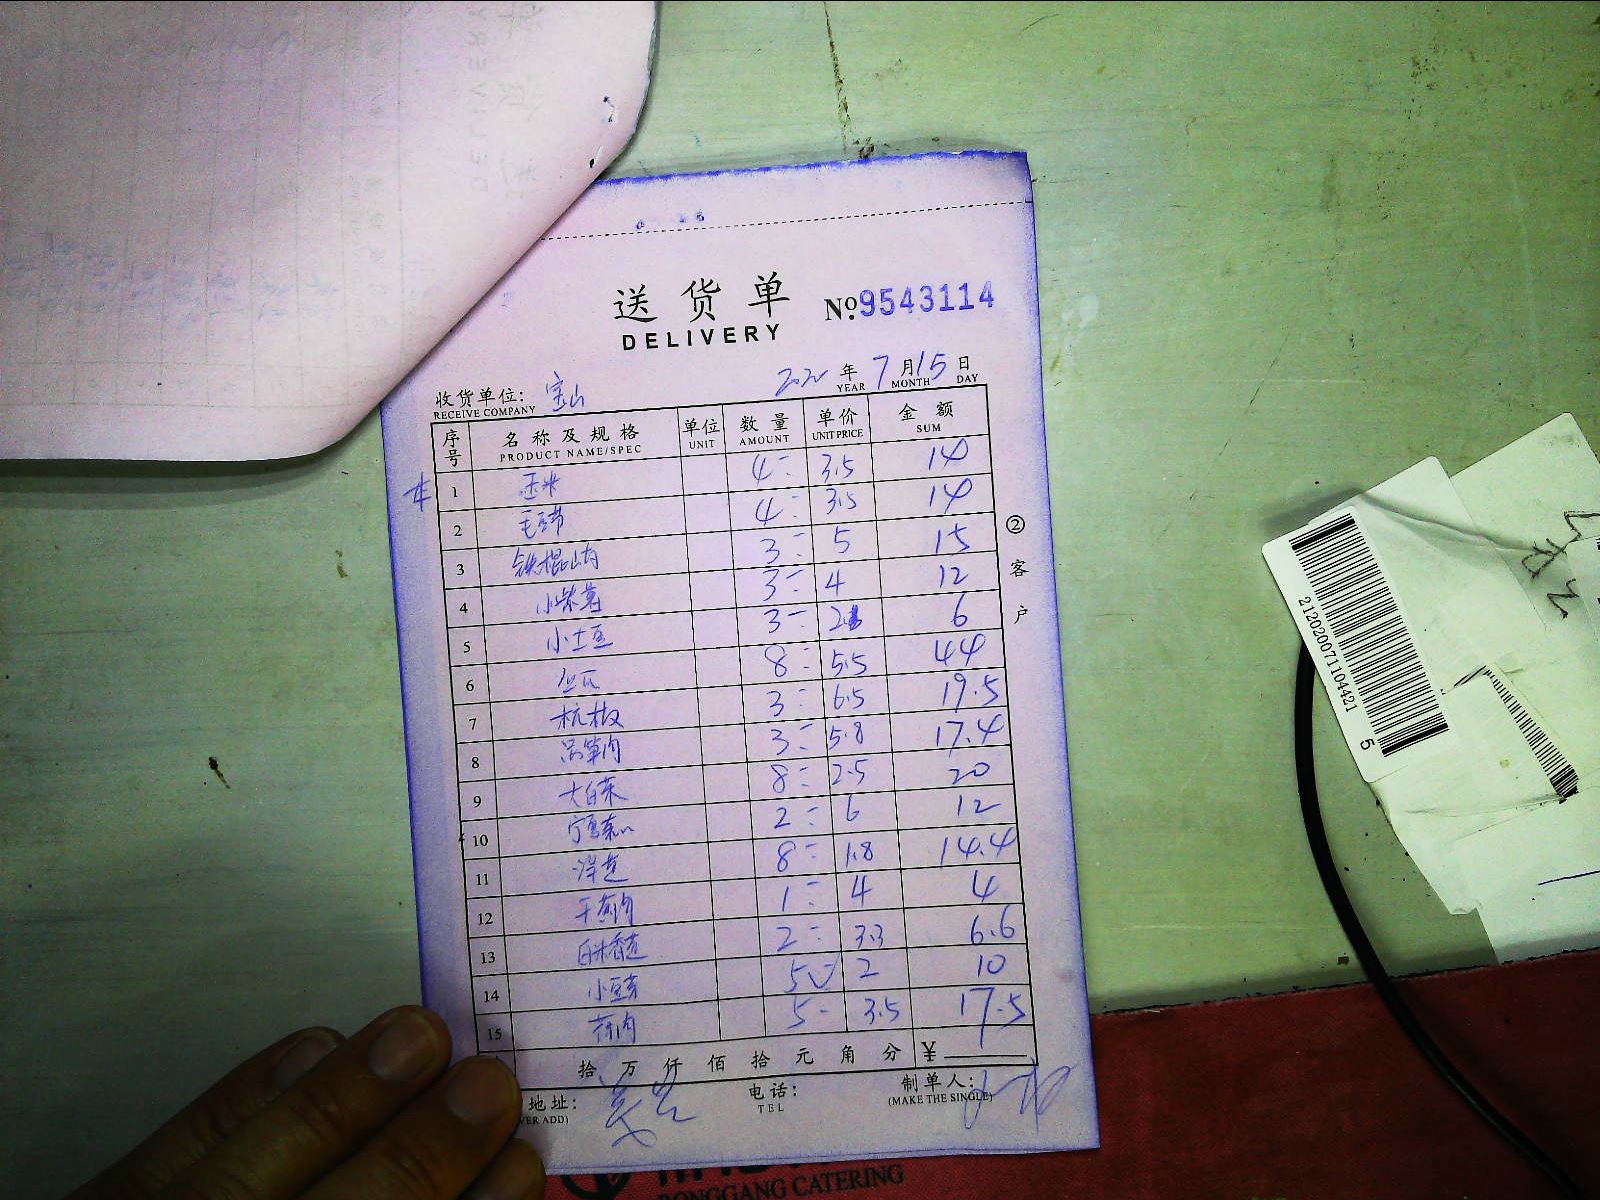 送货单
DELIVERY
№ 9543114
2020年7月15日
YEAR MONTH DAY
收货单位: 宝山
RECEIVE COMPANY
序号 名称及规格 单位 数量 单价 金额
PRODUCT NAME/SPEC UNIT AMOUNT UNIT PRICE SUM
1 玉米 4 3.5 14
2 毛豆节 4 3.5 14
3 铁棍山内 3 5 15
4 小紫薯 3 4 12
5 小土豆 3 2 6
6 丝瓜 8 5.5 44
7 杭椒 3 6.5 19.5
8 3 5.8 17.4
9 大白菜 8 2.5 20
10 2 6 12
11 洋芝 8 1.8 14.4
12 1 4 4
13 2 3.3 6.6
14 小豆芽 5 2 10
15 5 3.5 17.5
拾万仟佰拾元角分 ¥
地址: 电话: 制单人:
VER ADD) TEL (MAKE THE SINGLE)
② 客户
2120200711044215
RONGGANG CATERING